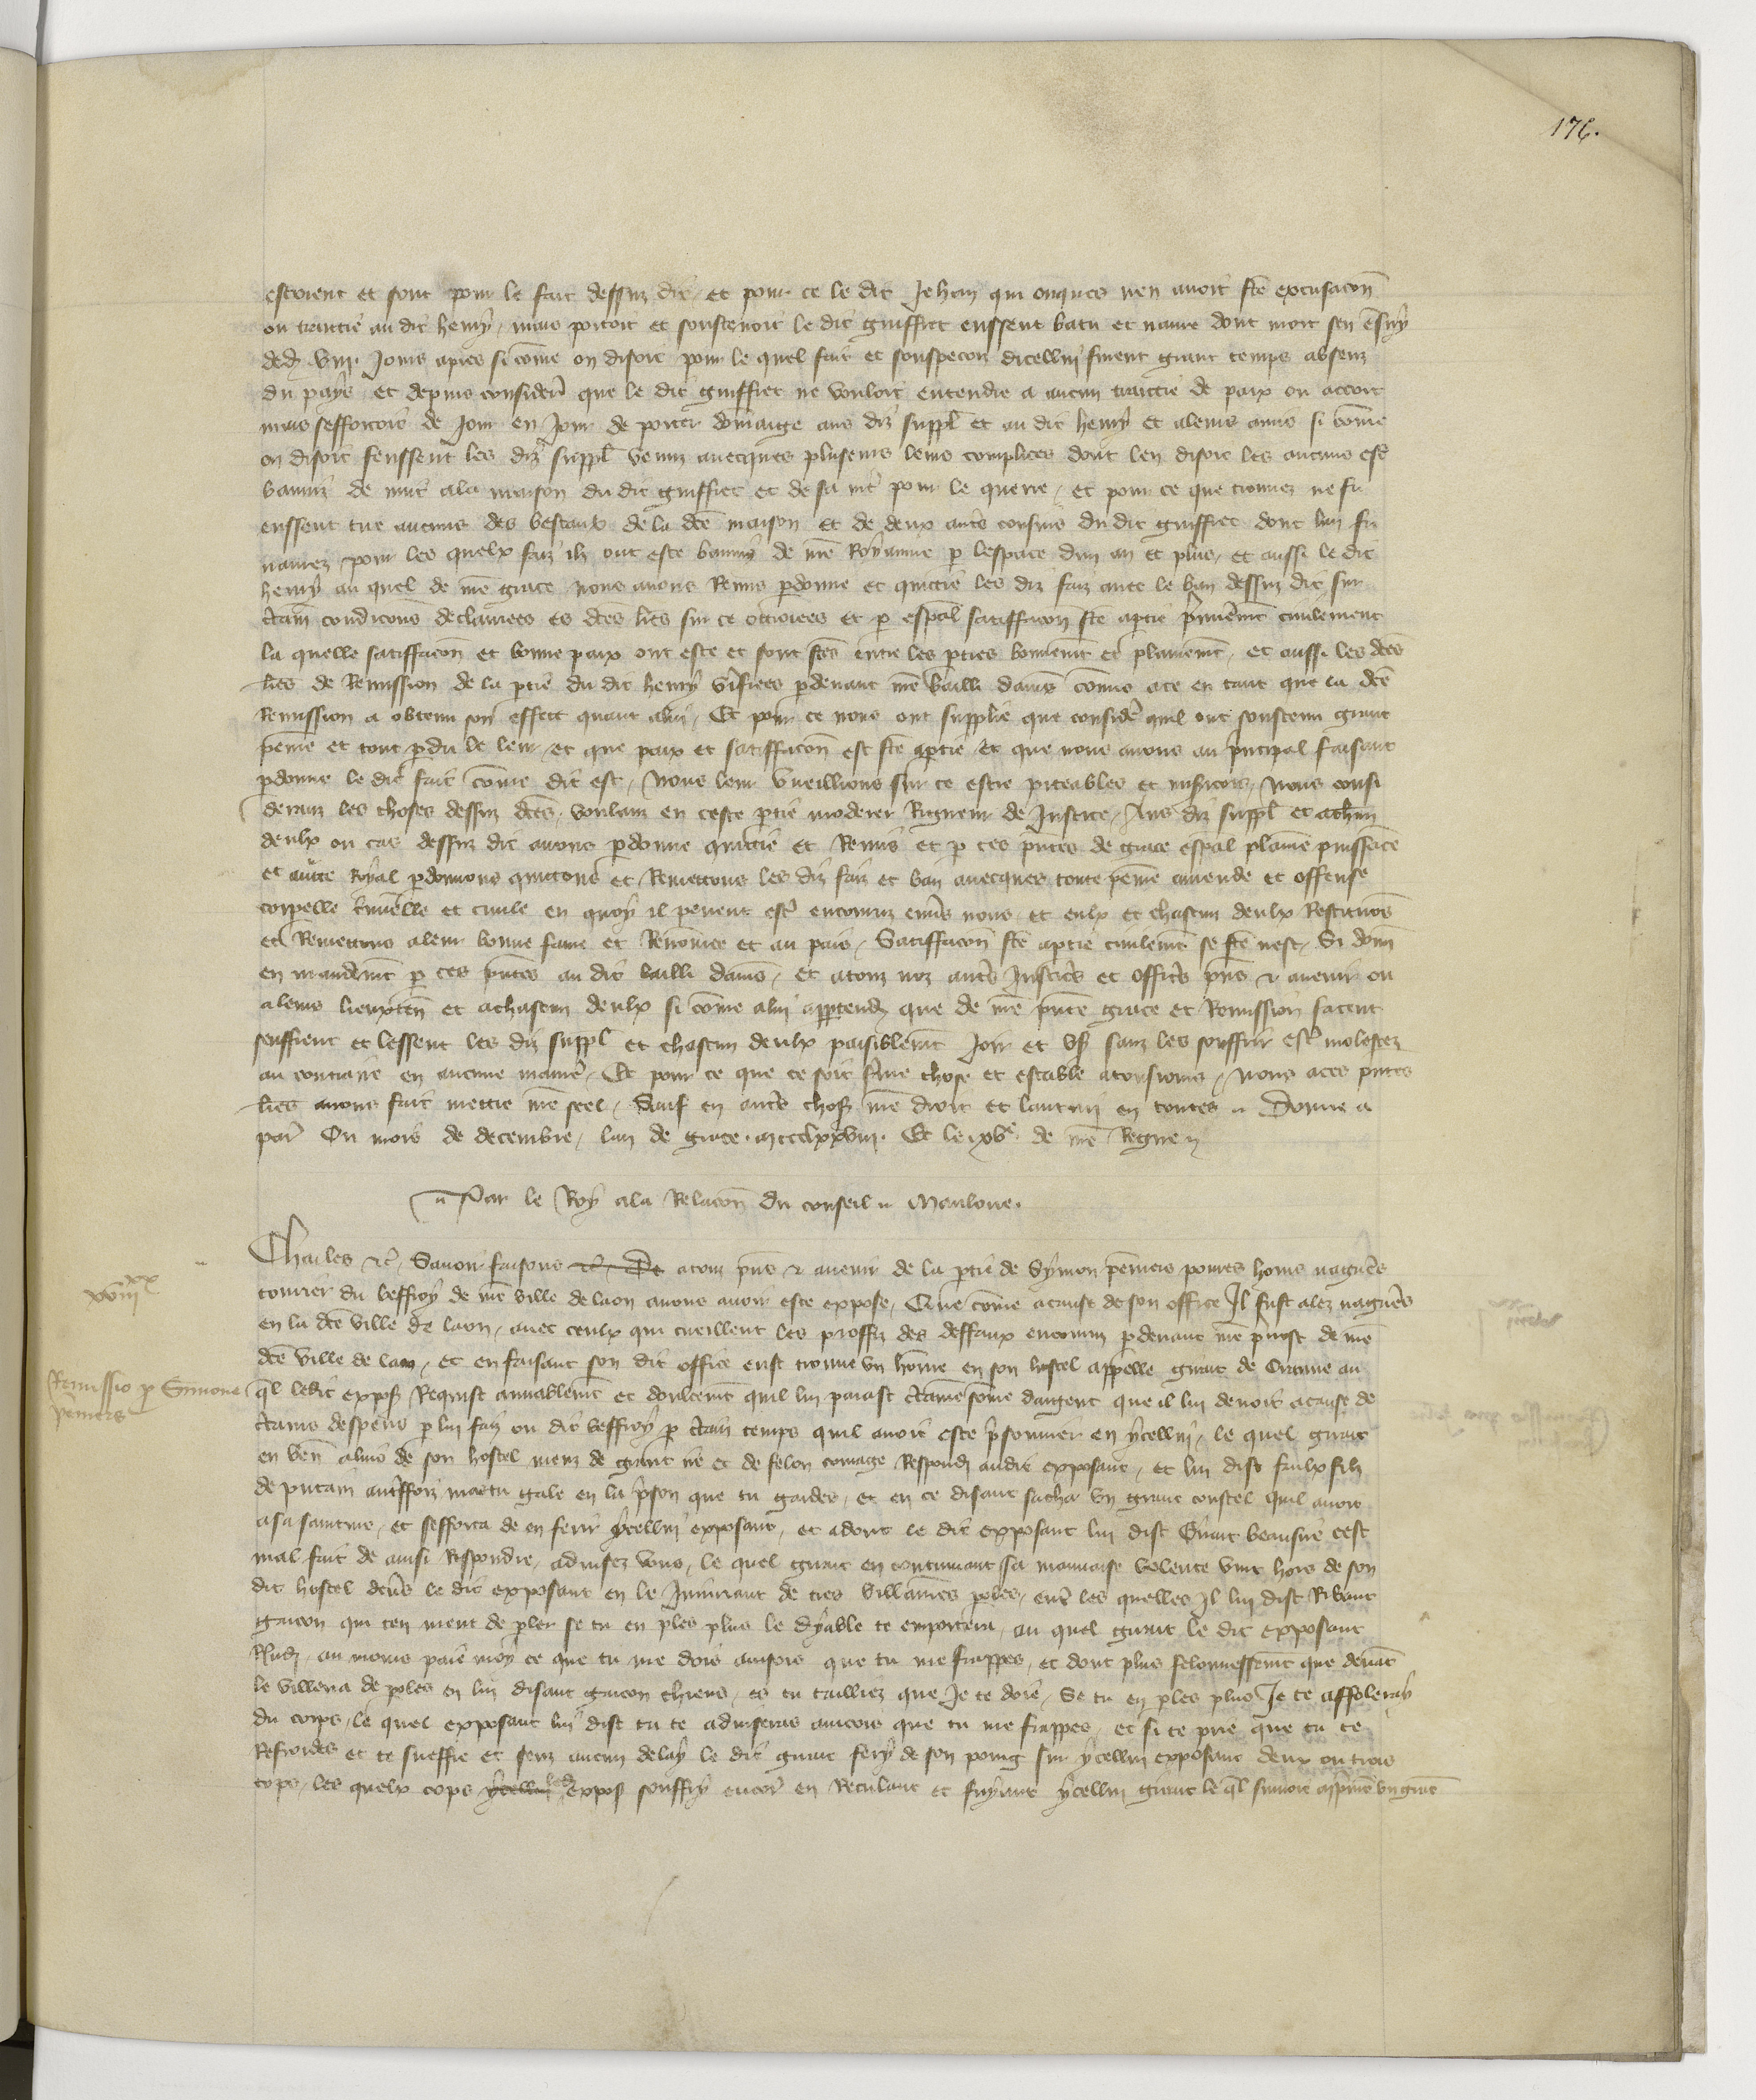 176.
estoient et sont pour le fait dessuz dit, et pour ce le dit Jehan qui onques nen avoit fcē excusacoñ
ou traictié au dit henry, mais portoit et soustenoit le dit guiffret eussent batu et navre dont mort sen ensuy
dedz viij. jours apres si cōme on disoit pour le quel fait et souspecon dicellui furent grant temps absenz
du pays, et depuis considerē que le dit guiffret ne vouloit entendre a aucun traictié de paix ou accort
mais sefforcoit de jour en jour de porter dōmaige aus diz suppl et au dit henry et aleurs amis si cōme
on disoit feussent les diz suppl venuz avecques pluseurs leurs complices dont len disoit les aucuns estē
banniz de nuit ala maison du dit guiffret et de sa mē pour le querre, et pour ce que trouvez ne fu
eussent tue aucuns des bestaux de la dcē maison et de deux autēs cousins du dit guiffret dont lun fu
navrez pour les quelx faiz ilz ont este banniz de nrē Royaume p lespace dun an et plus, et aussi le dit
henry au quel de nrē grace nous avons Remis pdonne et quictié les diz faiz avec le ban dessuz dit sur
ctainēs condicions declairees es dcēs lrēs sur ce ottroiees et p espāl satiffacoñ fcē aptie premierēmt civilement
la quelle satiffacoñ et bonne paix ont este et sont fcēs entre les pties bonnemt et plainemt, et aussi les dcēs
lrēs de Remission de la ptie du dit henry verifiees pdevant nrē bailli damiēs cōmis ace en tant que la dcē
Remission a obtenu son effect quant alui, Et pour ce nous ont supplié que considerē quil ont soustenu grant
peinne et tout pdu le leur et que paix et satiffacoñ est fcē aptie Et que nous avons au principal faisant
pdonne le dit fait cōme dit est, Nous leur vueillions sur ce estre piteables et misericors, Nous consi
derans les choses dessuz dcēs, voulans en ceste ptie moderer Rigueur de justice, Aus diz suppl et achun
deulx ou cas dessuz dit avons pdonne quictié et Remis et p ces pntēs de grace espāl plainē puissāce
et aucte Royal pdonnons quictons et Remettons les diz faiz et ban avecques toute peinne amende et offense
corpelle criminelle et civile en quoy il pevent estē encouruz envs nous, et eulx et chascun deulx Restituōs
et Remettons aleur bonne fame et Renōmee et au païs, Satiffacoñ fcē aptie civilemt se fcē nest, Si donñ
en mandemt p ces pntēs au dit bailli damiēs, et atouz noz autēs justicēs et officēs pns & avenir ou
aleurs lieuxteñ et achascun deulx si cōme alui apptendz que de nrē pntē grace et Remission facent
seuffrent et lessent les diz suppl et chascun deulx paisiblemt joir et us sanz les souffrir estē molestez
au contraire en aucune manē, Et pour ce que ce soit fme chose et estable atousjours, nous aces pntēs
lrēs avons fait mettre nrē seel, Sauf en autēs choses nrē droit et lautrui en toutes. Donne a
parˢ Ou mois de decembre, lan de grace mccclxxviii. Et le xvᵉ de nrē Regne

Par le Roy ala Relacoñ du conseil. Manloue.

xviijxx
Remissio p Simone
peniers
Charles &c̄ Savoir faisons atouz pns & avenir de la ptie de symon peniers povres homs nagūes
tourier du beffroy de nrē ville de laon avons avoir este expose, Que cōme acause de son office Il fust alez nagūes
en la dcē ville de laon, avec ceulx qui cueillent les proffiz des deffaux encouruz pdevant nrē prevost de nrē
dcē ville de laon, et en faisant son dit office eust trouve un hōme en son hostel appelle girat de au
ql ledit expos Requist amiablemt et doulcemt quil lui paiast ctainē sōme dargent que il lui devoit acause de
ctains despens p lui faiz ou dit beffroy p ctain temps quil avoit este prisonnier en ycellui, le quel girat
en vent aluis de son hostel meuz de grant ire et de felon courage Respondi audit exposant, et lui dist faulx filz
de putain autffoiz mas tu gale en la pson que tu gardes, et en ce disant sacha un grant coustel quil avoit
asa sainture, et sefforca de en ferir ycellui exposant, et adont le dit exposant lui dist Girat beausire cest
mal fait de ainsi Respondre, advisez vous, le quel girat en continuant sa mauvaise volente vint hors de son
dit hostel devs le dit exposant en le injuriant de tres villainēs poles, entē les quelles Il lui dist Ribaut
garcon qui ten meut de pler se tu en ples plus le dyable te emportera, au quel girat le dit exposant
Rndz, au moins paie moy ce que tu me dois aincois que tu me frappes, et dont plus felonnessemt que devāt
le villena de poles en lui disant garcon chiens, es tu tailliez que Je te doie, Se tu en ples plus Je te affoleray
du corps, le quel exposant lui dist tu te adviseras aincois que tu me frappes, et si te prie que tu te
Refroides et te sueffre et senz aucun delay le dit girat fery de son poing sur ycellui exposant deux ou trois
cops, les quelx cops ycellui led expos souffry encor en Reculant et fuyant ycellui girat le ql suivoit aspmt un grāt